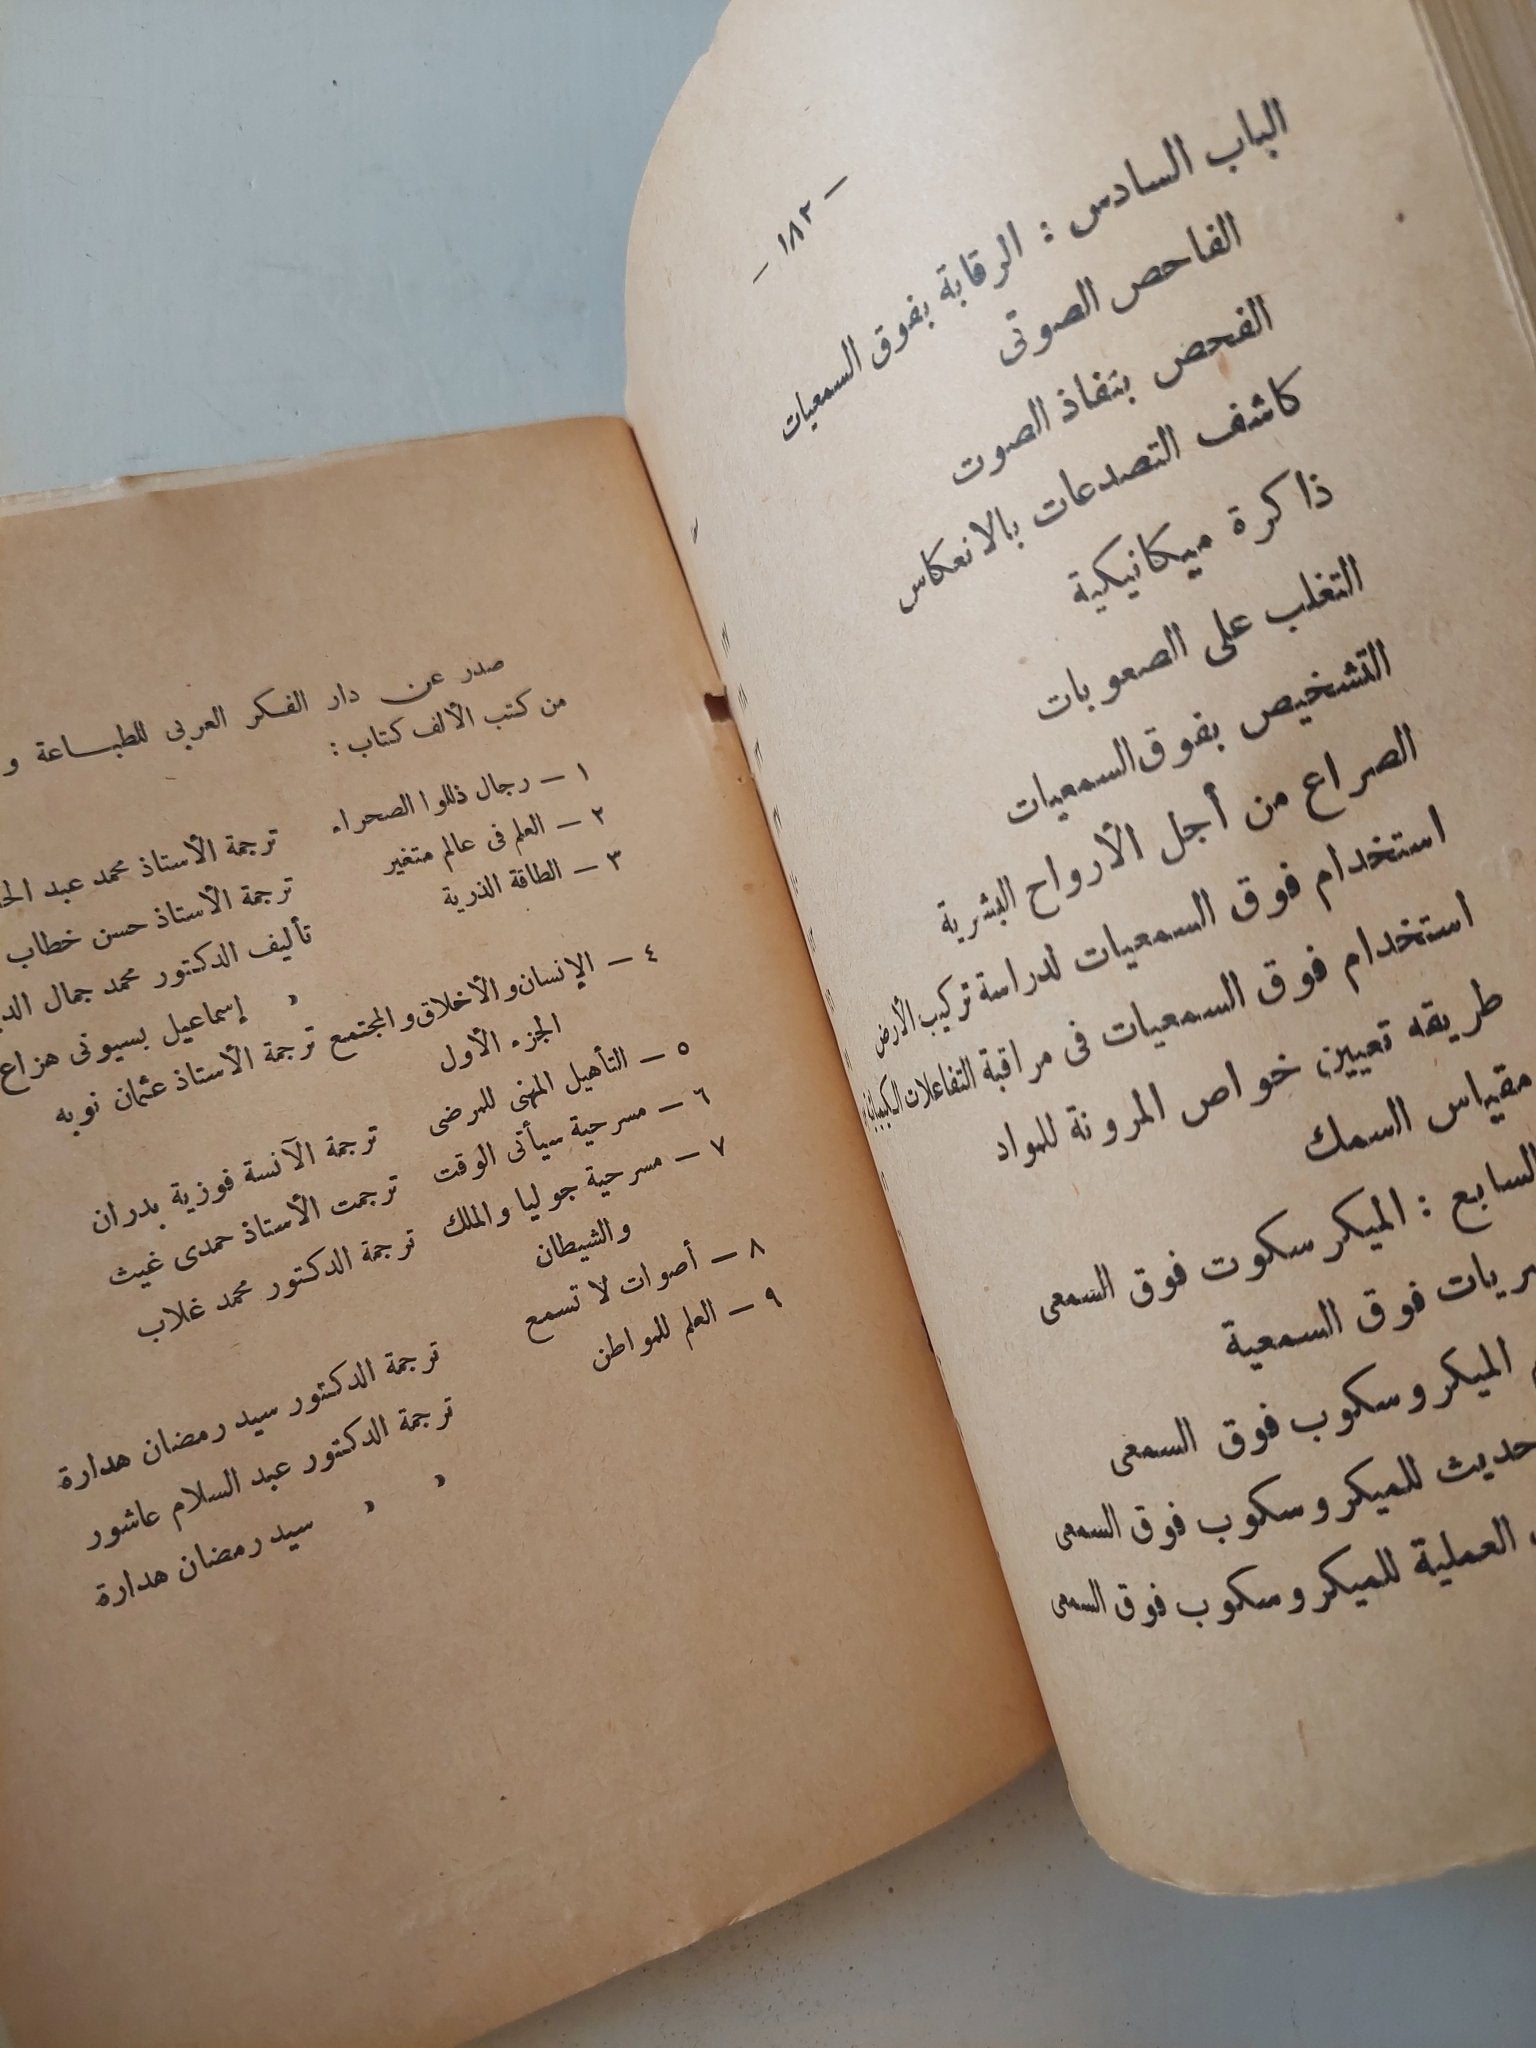 – ١٨٢ –
الباب السادس : الرقابة بفوق السمعيات
الفاحص الصوتى
الفحص بنفاذ الصوت
كاشف التصدعات بالانعكاس
ذاكرة ميكانيكية
التغلب على الصعوبات
التشخيص بفوق السمعيات
الصراع من أجل الأرواح البشرية
استخدام فوق السمعيات لدراسة تركيب الأرض
استخدام فوق السمعيات فى مراقبة التفاعلات
طريقه تعيين خواص المرونة للمواد
مقياس السمك
السابع : الميكرسكوت فوق السمعى
فوق السمعية
الميكروسكوب فوق السمعى
حديث للميكروسكوب فوق السمعى
العملية للميكروسكوب فوق السمعى
صدر عن دار الفكر العربى للطباعة و
من كتب الألف كتاب :
١ – رجال ذللوا الصحراء ترجمة الأستاذ محمد عبد
٢ – العلم فى عالم متغير ترجمة الأستاذ حسن خطاب
٣ – الطاقة الذرية تأليف الدكتور محمد جمال
« إسماعيل بسيونى هزاع
٤ – الإنسان والأخلاق والمجتمع ترجمة الأستاذ عثمان نويه
الجزء الأول
٥ – التأهيل المهنى للمرضى ترجمة الآنسة فوزية بدران
٦ – مسرحية سيأتى الوقت ترجمت الأستاذ حمدى غيث
٧ – مسرحية جوليا والملك ترجمة الدكتور محمد غلاب
والشيطان
٨ – أصوات لا تسمع ترجمة الدكتور سيد رمضان هدارة
٩ – العلم للمواطن ترجمة الدكتور عبد السلام عاشور
« « سيد رمضان هدارة